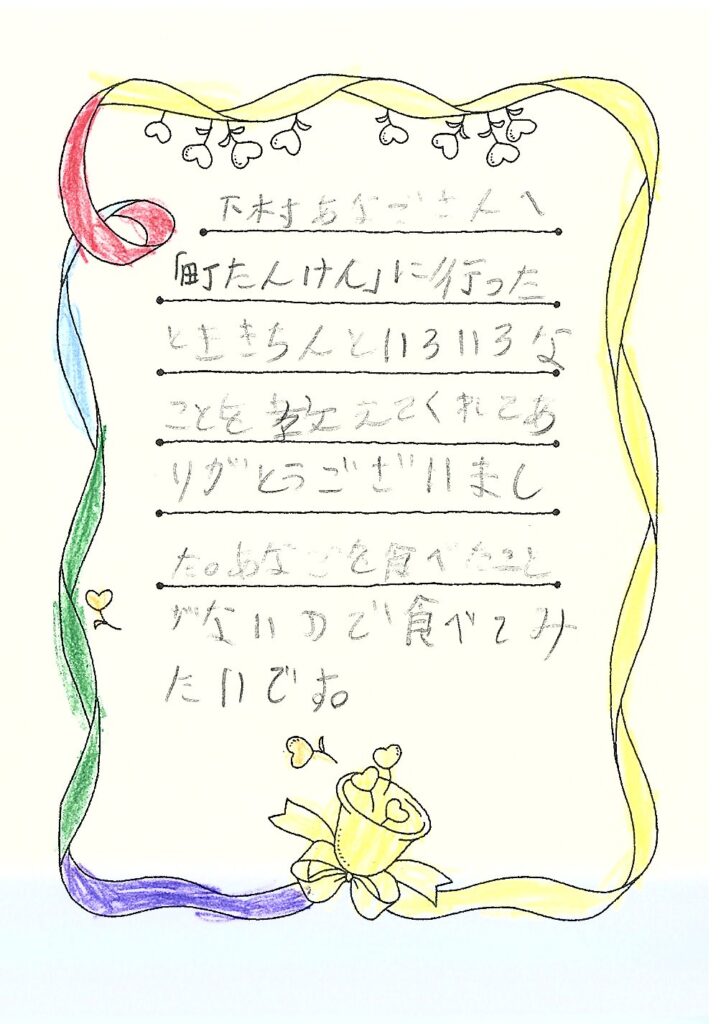 下村あなごさんへ
「町たんけん」に行った
ときさちんといろいろな
ことを教えてくれてあ
りがとうございまし
た。あなごを食べたこと
がないので食べてみ
たいです。